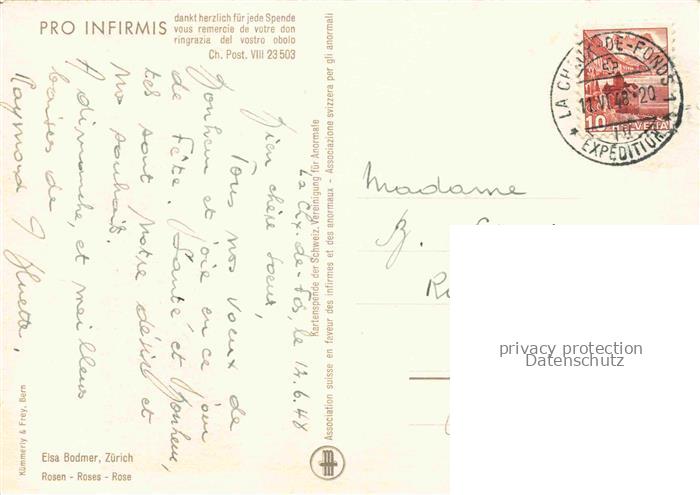 PRO INFIRMIS
dankt herzlich für jede Spende
vous remercie de votre don
ringrazia del vostro obolo
Ch. Post. VIII 23 503
La Chx-de-Fds, le 12.6.48
Bien chère soeur,
Tous nos voeux de
bonheur et joie en ce jour
de fête. Santé et bonheur,
tels sont notre désir et
nos souhaits.
A dimanche, et meilleurs
baisers de
Raymond &
Kümmerly & Frey, Bern
Elsa Bodmer, Zürich
Rosen - Roses - Rose
Kartenspende der Schweiz. Vereinigung für Anormale
Association suisse en faveur des infirmes et des anormaux - Associazione svizzera per gli anormali
LA CHAUX-DE-FONDS 1
11.VI.48-20
EXPEDITION
10 HELVETIA
Madame
B.
privacy protection
Datenschutz